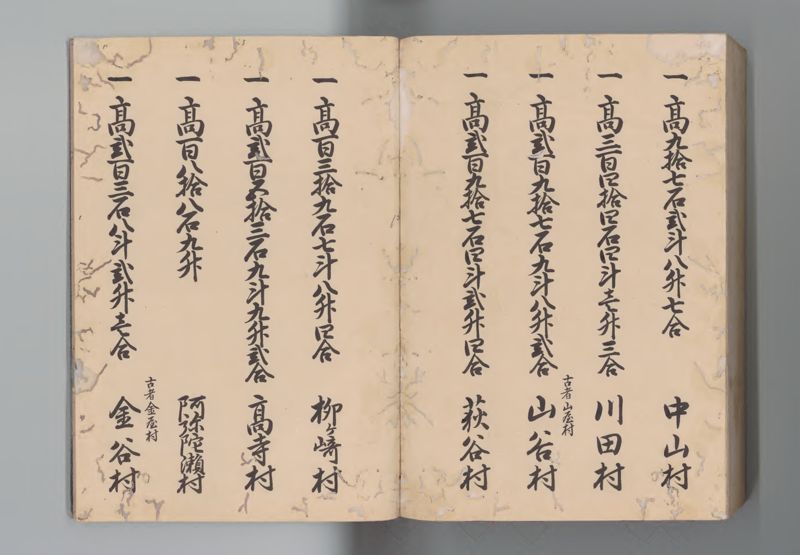 一 高九拾七石弐斗八升七合 中山村
一 高三百四拾四石四斗壱升三合 川田村
古者山屋村
一 高弐百九拾七石九斗八升弐合 山谷村
一 高弐百九拾七石四斗弐升四合 萩谷村
一 高百三拾九石七斗八升四合 柳ヶ崎村
一 高弐百六拾三石九斗九升弐合 高寺村
一 高百八拾八石九升 阿弥陀瀬村
古者金屋村
一 高弐百三石八斗弐升壱合 金谷村